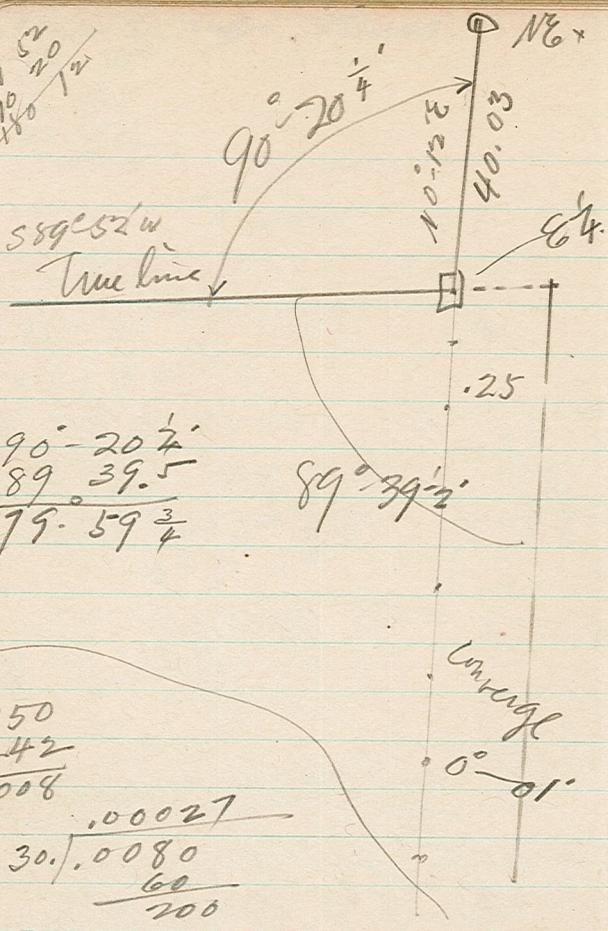 52
20
12
NE
90°-20 1/4'
N0°-12'E
40.03
S89°52'W
True line
E 1/4.
.25
90°-20 1/4'
89 39.5
79.° 59 3/4
89°-39 1/2'
Converge
0°-01'
50
42
008
.00027
30.).0080
60
200